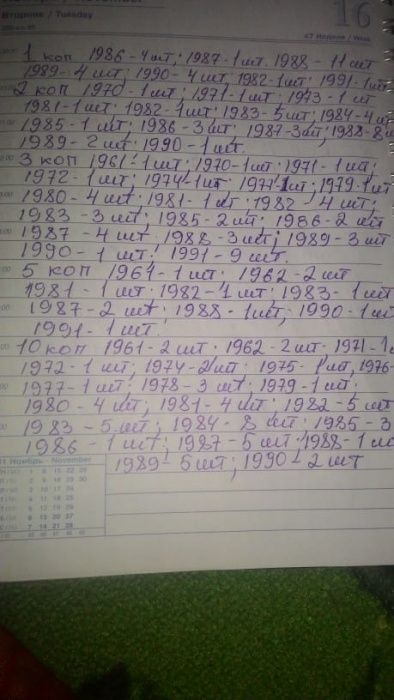 Вторник / Tuesday
16
47 Неделя / Week
1 коп 1986 - 4 шт; 1987 - 1 шт. 1988 - 11 шт
1989 - 4 шт; 1990 - 4 шт; 1982 - 1 шт; 1991 - 1 шт
2 коп 1970 - 1 шт; 1971 - 1 шт; 1973 - 1 шт
1981 - 1 шт; 1982 - 1 шт; 1983 - 5 шт; 1984 - 4 ш
1985 - 1 шт; 1986 - 3 шт; 1987 - 3 шт; 1988 - 8 ш
1989 - 2 шт; 1990 - 1 шт.
3 коп 1961 - 1 шт; 1970 - 1 шт; 1971 - 1 шт;
1972 - 1 шт; 1974 - 1 шт; 1977 - 1 шт; 1979 - 1 шт
1980 - 4 шт; 1981 - 1 шт; 1982 - 4 шт;
1983 - 3 шт; 1985 - 2 шт; 1986 - 2 шт
1987 - 4 шт; 1988 - 3 шт; 1989 - 3 шт
1990 - 1 шт; 1991 - 9 шт.
5 коп 1961 - 1 шт; 1962 - 2 шт
1981 - 1 шт; 1982 - 1 шт; 1983 - 1 шт
1987 - 2 шт; 1988 - 1 шт; 1990 - 1 шт
1991 - 1 шт.
10 коп 1961 - 2 шт; 1962 - 2 шт; 1971 - 1
1972 - 1 шт; 1974 - 2 шт; 1975 - 1 шт, 1976 -
1977 - 1 шт; 1978 - 3 шт; 1979 - 1 шт;
1980 - 4 шт; 1981 - 4 шт; 1982 - 5 шт
1983 - 5 шт; 1984 - 8 шт; 1985 - 3
1986 - 1 шт; 1987 - 5 шт; 1988 - 1
1989 - 5 шт; 1990 - 2 шт
11 Ноябрь November